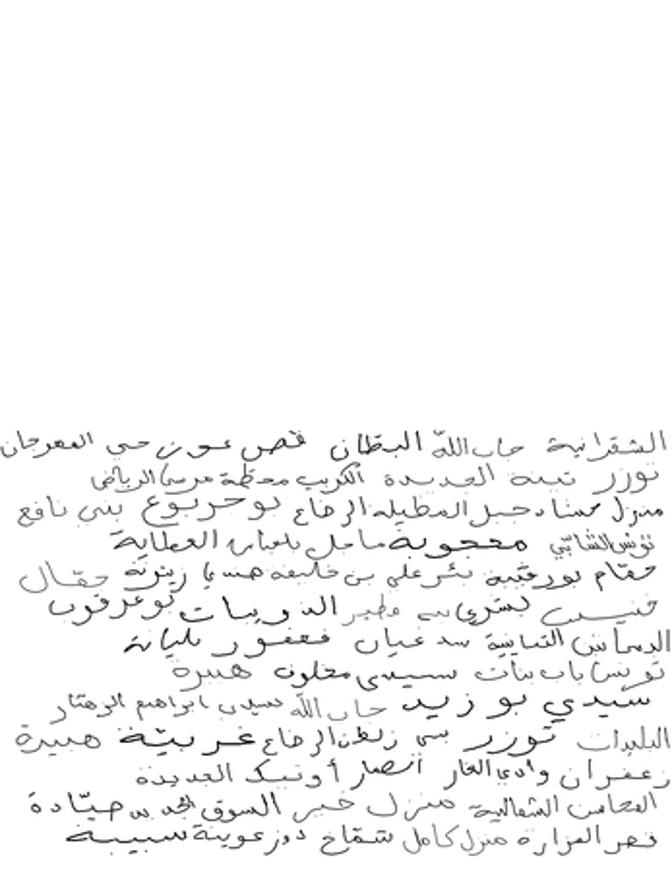 الشقرانية جاب الله البطان قصر عون حي المهرجان
توزر تبنة الجديدة الكريب محطة مرسى الرياض
منزل مهنا دجبل المطيله الرضاع بو جربوع بني نافع
تونس الشابي معجوبة ماجل بلعباس العطاية
مقام بورقيبة بئر علي بن خليفة زيتونة
خنيسي بشري الذويبات بوعرقوب
الديماس الثمانية فعفور مليانة
تونس باب بنات سيدي مخلوف هبيرة
سيدي بوزيد جاب الله سيدي ابراهيم الزهار
البليدات توزر سي الرضاع غريبة هبيرة
زعفران وادي الغار أنصار أوتيك الجديدة
المحاسن الشمالية منزل خير السوق الجديد صيّادة
قصر المزارة منزل كامل شمّاخ دوز عوينة سبيبة